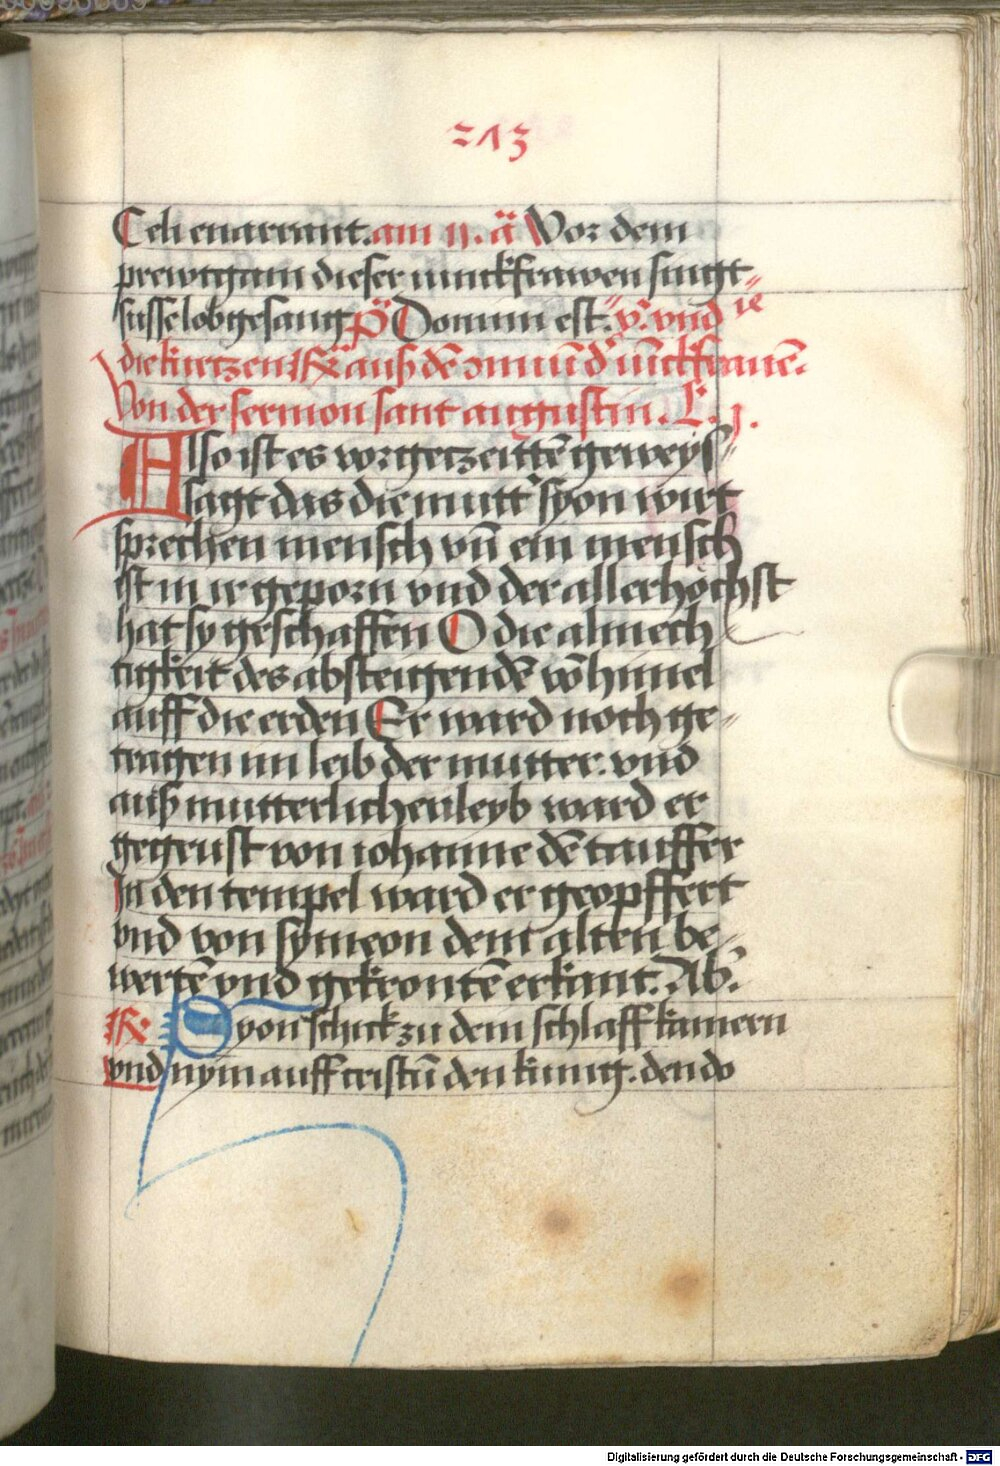 213
Celi enarrant. am ij. ā Vor dem
prewtgam dieser iunckfrawen singt
süsse lobgesang pͦ Domum est. v. vnd ie
die kurtzen Rͣ auß dē ɔmuū d' iūckfrauē.
Von der sermon sant augustin. L. j.
Also ist es vorgetzeittē geweys
sagt das die mutt' syon wirt
sprechen mensch vn̄ ein mensch
ist in ir geporn vnd der allerhöchst
hat sy geschaffen O die almech
tigkeit des absteigendē vō himel
auff die erden Er ward noch ge
tragen im leib der mutter. vnd
auß mutterlichen leyb ward er
gegrust von iohanne dē tauffer
In den tempel ward er geopffert
vnd von symeon dem alten be
wertē vnd gekrontē erkant. Ab'.
R. Syon schick zu dem schlaffkamern
vnd nym auff cristū den kunig. den do
Digitalisierung gefördert durch die Deutsche Forschungsgemeinschaft - DFG